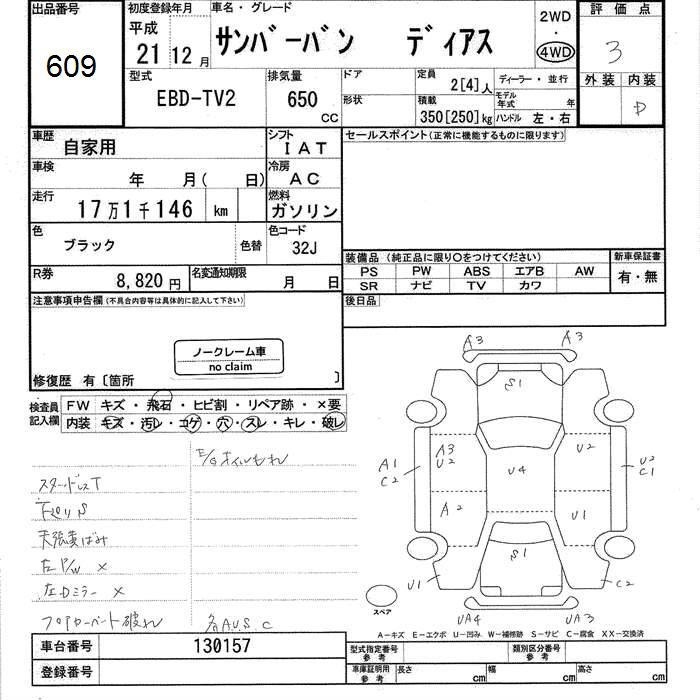 出品番号
609
初度登録年月
平成
21 12 月
車名・グレード
サンバーバン ディアス
2WD
・
4WD
評価点
3
外装 内装
D
型式
EBD-TV2
排気量
650
CC
ドア
形状
定員
2[4]人
積載
350[250]kg
ディーラー・並行
モデル年式 年
ハンドル 左・右
車歴
自家用
シフト
IAT
車検
年 月( 日)
冷房
AC
走行
17万1千146 km
燃料
ガソリン
色
ブラック
色替
色コード
32J
R券
8,820 円
名変通知期限
月 日
セールスポイント(正常に機能するものに限ります)
装備品 (純正品に限り○をつけてください)
PS PW ABS エアB AW
SR ナビ TV カワ
新車保証書
有・無
後日品
注意事項申告欄(不具合内容等は具体的に記入して下さい)
ノークレーム車
no claim
修復歴 有〔箇所 〕
検査員記入欄
FW キズ・飛石・ヒビ割・リペア跡・×要
内装 キズ・汚レ・コゲ・穴・スレ・キレ・破レ
E/Gオイルもれ
スタッドレスT
下廻りS
天張黄ばみ
左P/W ×
左Dミラー ×
フロアカーペット破れ
各AUS C
A3
A3
S1
A1
C2
A3
U2
U4
U2
U2
C1
A2
U1
S1
U1
C2
UA4
UA3
スペア
A-キズ E-エクボ U-凹み W-補修跡 S-サビ C-腐食 XX-交換済
車台番号
130157
登録番号
型式指定番号
参考
類別区分番号
参考
車庫証明用
参考
長さ cm
幅 cm
高さ cm